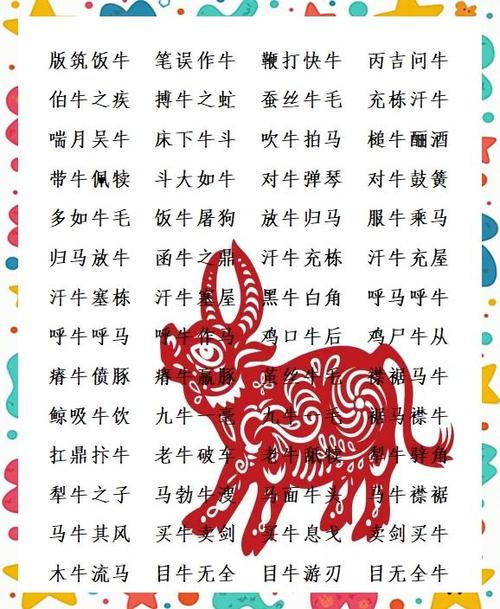 版筑饭牛 笔误作牛 鞭打快牛 丙吉问牛
伯牛之疾 搏牛之虻 蚕丝牛毛 充栋汗牛
喘月吴牛 床下牛斗 吹牛拍马 槌牛酾酒
带牛佩犊 斗大如牛 对牛弹琴 对牛鼓簧
多如牛毛 饭牛屠狗 放牛归马 服牛乘马
归马放牛 函牛之鼎 汗牛充栋 汗牛充屋
汗牛塞栋 汗牛塞屋 黑牛白角 呼马呼牛
呼牛呼马 呼牛作马 鸡口牛后 鸡尸牛从
瘠牛偾豚 瘠牛羸豚 茧丝牛毛 襟裾马牛
鲸吸牛饮 九牛一毫 九牛一毛 裾马襟牛
扛鼎抃牛 老牛破车 老牛舐犊 犁牛骍角
犁牛之子 马勃牛溲 马面牛头 马牛襟裾
马牛其风 买牛卖剑 买牛息戈 卖剑买牛
木牛流马 目牛无全 目牛游刃 目无全牛